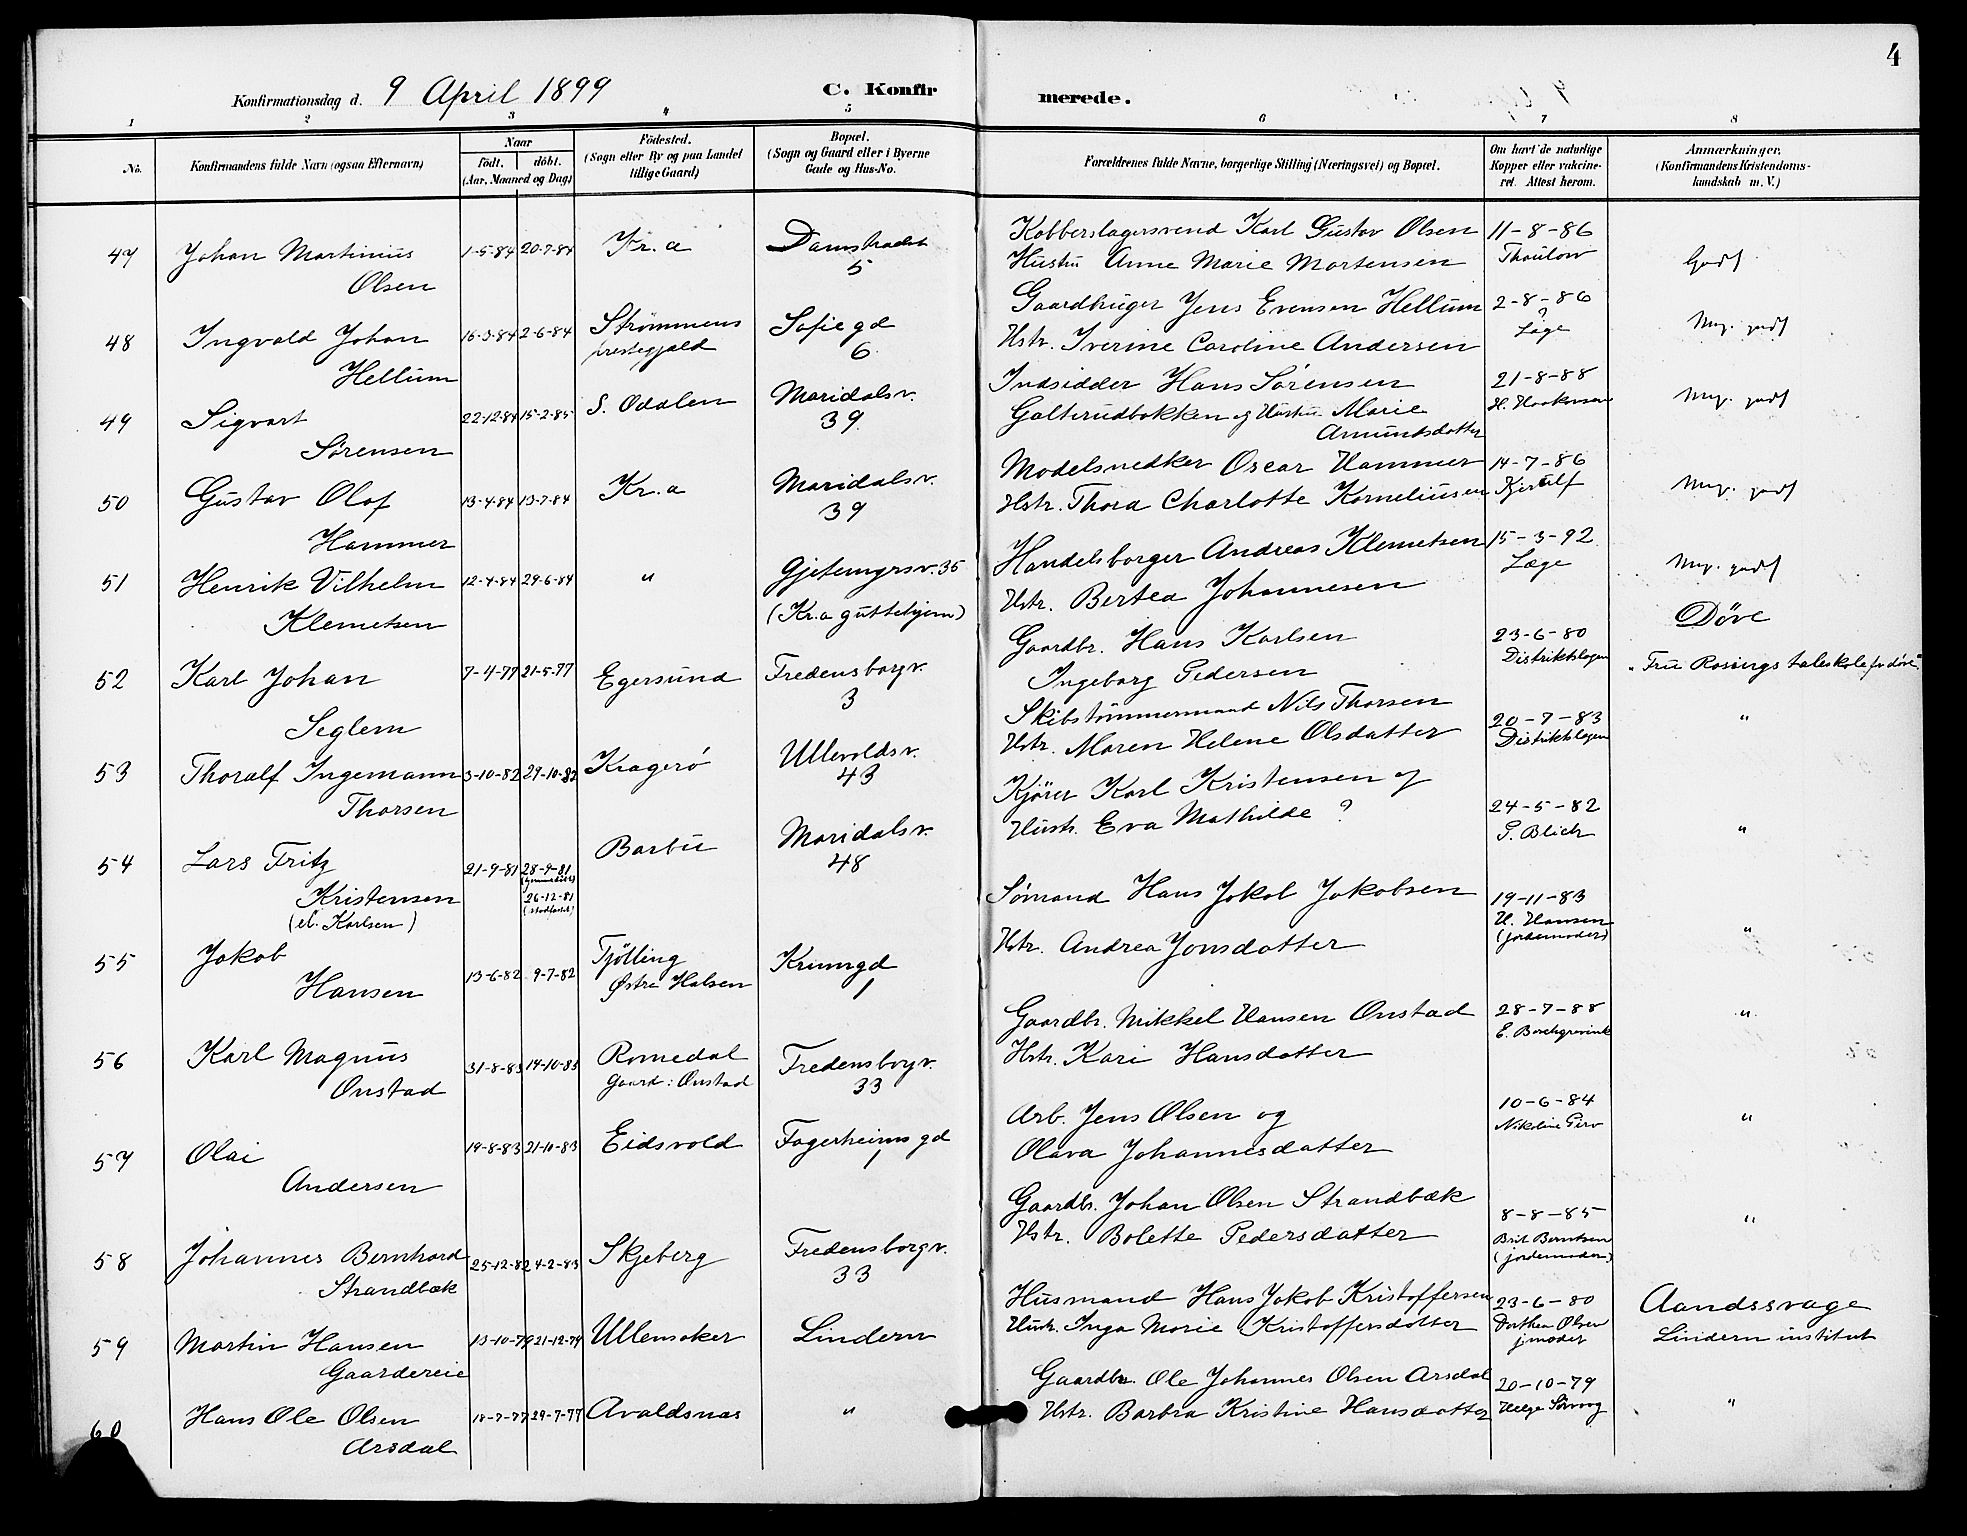 4
Konfirmationsdag d. 9 April 1899
C. Konfir
merede.
1 2 3 4 5 6 7 8
No.
Konfirmandens fulde Navn (ogsaa Efternavn)
Naar
födt. döbt.
(Aar, Maaned og Dag)
Födested.
(Sogn eller By og paa Landet
tillige Gaard)
Bopæl.
(Sogn og Gaard eller i Byerne
Gade og Hus-No.
Forældrenes fulde Navne, borgerlige Stilling (Næringsvei) og Bopæl.
Om havt de naturlige
Kopper eller vakcine-
ret. Attest herom.
Anmærkninger.
(Konfirmandens Kristendoms-
kundskab m. V.)
47 Johan Martinius 1-5-84 20-7-84 Kr.a Damstradet
Olsen 5
Kobberslagersvend Karl Gustav Olsen 11-8-86
Hustru Anne Marie Mortensen Thaulow Godt
48 Ingvald Johan 16-3-84 2-6-84 Strømmens Sofiegd
Hellum prestegjeld 6
Gaardbruger Jens Evensen Hellum 2-8-86
Hstr. Iverine Caroline Andersen ? Læge Meg. godt
49 Sigvart 22-12-84 15-2-85 S. Odalen Maridalsv.
Sørensen 39
Indsidder Hans Sørensen 21-8-88
Galterudbakken og Hustru Marie H. Haakonsen Meg. godt
Amundsdatter
50 Gustav Olaf 13-4-84 13-7-84 Kr.a Maridalsv.
Hammer 39
Modelsnedker Oscar Hammer 14-7-86
Hstr. Thora Charlotte Korneliusen Kjerulf Meg. godt
51 Henrik Vilhelm 12-4-84 29-6-84 " Gjetemyrsv. 35
Klemetsen (Kr.a guttehjem)
Handelsborger Andreas Klemetsen 15-3-92
Hstr. Bertea Johannesen Læge Meg. godt
Døve
52 Karl Johan 7-4-77 21-5-77 Egersund Fredensborgv.
Seglem 3
Gaardbr. Hans Karlsen 23-6-80
Ingeborg Pedersen Distriktslægen "Fru Rosings taleskole for døve"
53 Thoralf Ingemann 3-10-82 29-10-82 Kragerø Ullevoldsv.
Thorsen 43
Skibstømmermand Nils Thorsen 20-7-83 "
Hstr. Maren Helene Olsdatter Distriktslægen
54 Lars Fritz 21-9-81 28-9-81 Barbu Maridalsv.
(hjemmedøbt) 48
Kristensen 26-12-81
(el. Karlsen) (stadfæstet)
Kjører Karl Kristensen og 24-5-82 "
Hustr. Eva Mathilde ? P. Blich
55 Jakob 13-6-82 9-7-82 Tjølling Krumgd
Hansen Østre Halsen 1
Sømand Hans Jakob Jakobsen 19-11-83
Hstr. Andrea Jonsdatter H. Hansen "
(jordemoder)
56 Karl Magnus 31-8-83 14-10-83 Romedal Fredensborgv.
Onstad Gaard: Onstad 33
Gaardbr. Mikkel Hansen Onstad 28-7-88 "
Hstr. Kari Hansdatter E. Borchgrevink
57 Olai 19-8-83 21-10-83 Eidsvold Fagerheimsgd
Andersen 1
Arb. Jens Olsen og 10-6-84 "
Olava Johannesdatter Nikoline
58 Johannes Bernhard 25-12-82 4-2-83 Skjeberg Fredensborgv.
Strandbæk 33
Gaardbr. Johan Olsen Strandbæk 8-8-85 "
Hstr. Bolette Pedersdatter Brit Berntsen
(jordemoder)
59 Martin Hansen 13-10-79 21-12-79 Ullensaker Lindern
Gaardereie
Husmand Hans Jakob Kristoffersen 23-6-80 Aandssvage
Hustr. Inga Marie Kristoffersdatter Dorthea Olsen Lindern institut
jmoder
60 Hans Ole Olsen 18-7-77 29-7-77 Avaldsnæs "
Arsdal
Gaardbr. Ole Johannes Olsen Arsdal 20-10-79 "
Hstr. Barbra Kristine Hansdatter Helge